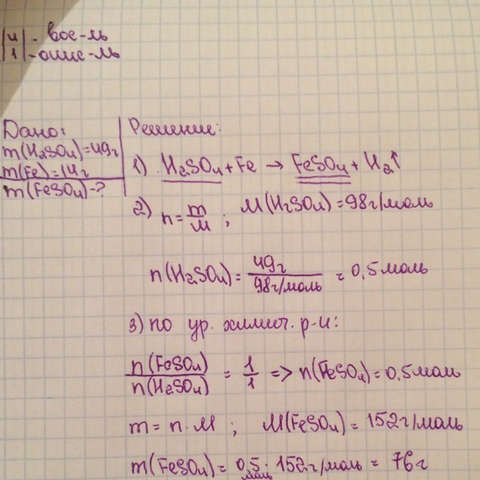 |4| - вос-ль
|1| - окис-ль
Дано:
m(H₂SO₄)=49г
m(Fe)=14г
m(FeSO₄)-?
Решение:
1) H₂SO₄ + Fe → FeSO₄ + H₂↑
2) n = m/M ; M(H₂SO₄) = 98г/моль
n(H₂SO₄) = 49г / 98г/моль = 0,5моль
3) по ур. химич. р-и:
n(FeSO₄)/n(H₂SO₄) = 1/1 => n(FeSO₄) = 0,5моль
m = n·M ; M(FeSO₄) = 152г/моль
m(FeSO₄) = 0,5 моль · 152г/моль = 76г